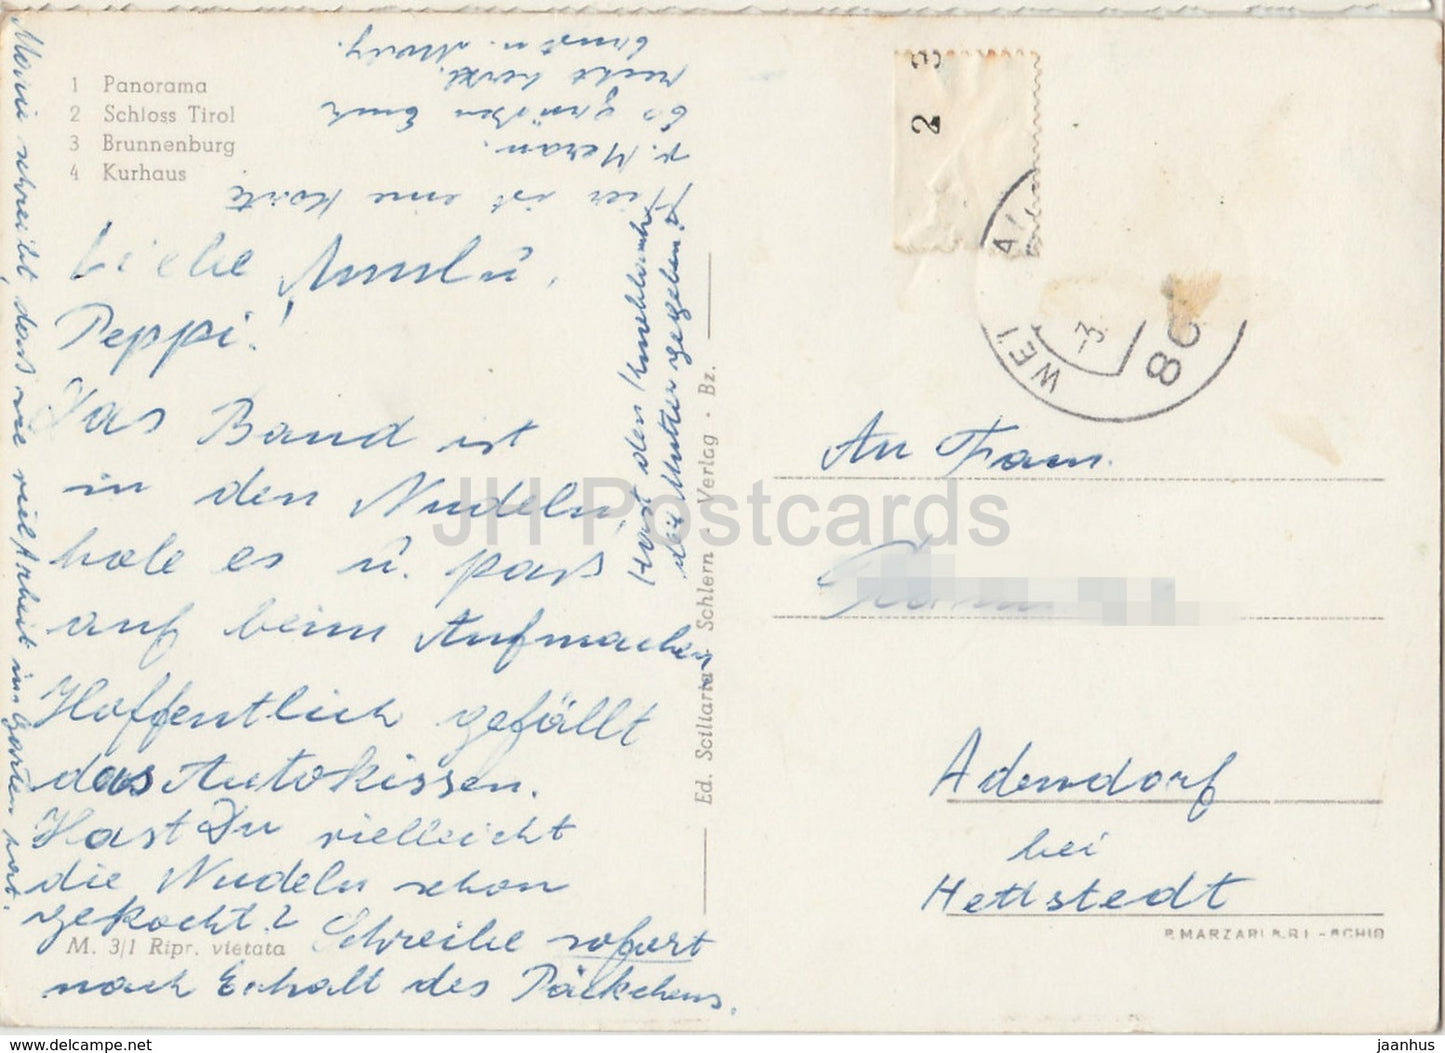 1 Panorama
2 Schloss Tirol
3 Brunnenburg
4 Kurhaus
Hier ist eine Karte
v. Meran.
Es grüßen Euch
recht herzl.
Ernst u. Molly.
Liebe Annel u.
Peppi!
Das Band ist
in den Nudeln,
hole es u. paß
auf beim Aufmachen
Hoffentlich gefällt
das Autokissen.
Hast Du vielleicht
die Nudeln schon
gekocht? Schreibe sofort
nach Erhalt des Päckchens.
Hast den Knoblauch
der Mutter gegeben?
schreibt, daß sie viel Arbeit im Garten hat.
M. 3/1 Ripr. vietata
Ed. Sciliaria Schlern - Verlag · Bz.
2 3
WEI
-3.
8
An Fam.
Adendorf
bei
Hettstedt
P. MARZARI S.R.L. - SCHIO
JH Postcards
m.delcampe.net
jaanhus